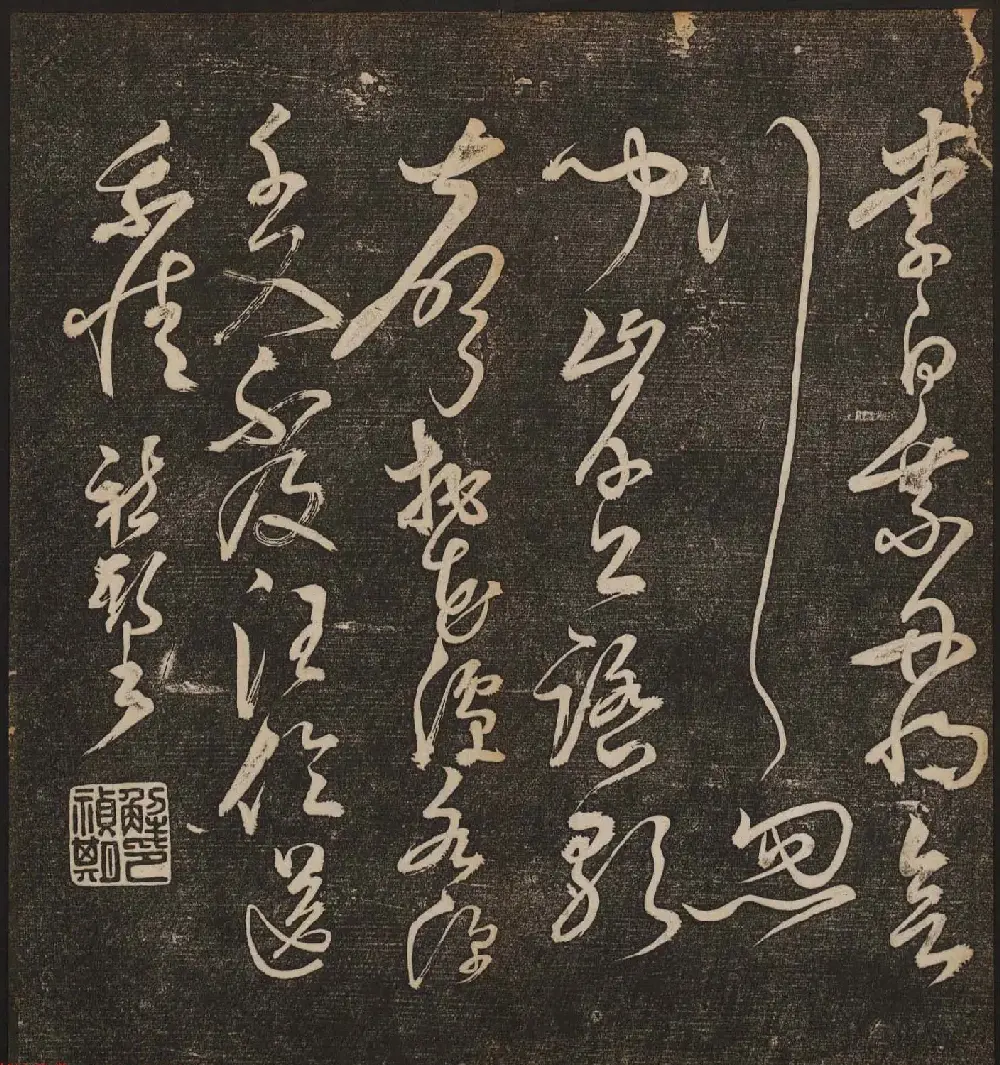 李白乘舟將欲
行忽
聞岸上踏歌
聲桃花潭水深
千尺不及汪倫送
我情 禎期書
解印禎期